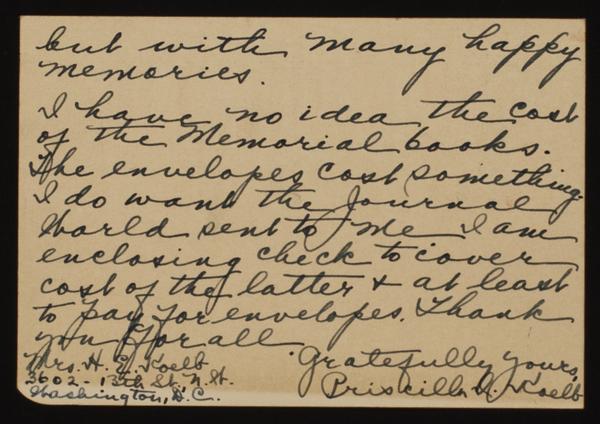 but with many happy
memories.
I have no idea the cost
of the Memorial books.
The envelopes cost something.
I do want the Journal
World sent to me I am
enclosing check to cover
cost of the latter & at least
to pay for envelopes. Thank
you for all
Gratefully yours,
Priscilla Koelb
Mrs. H. Koelb
3602 - 13th St. N.
Washington, D.C.